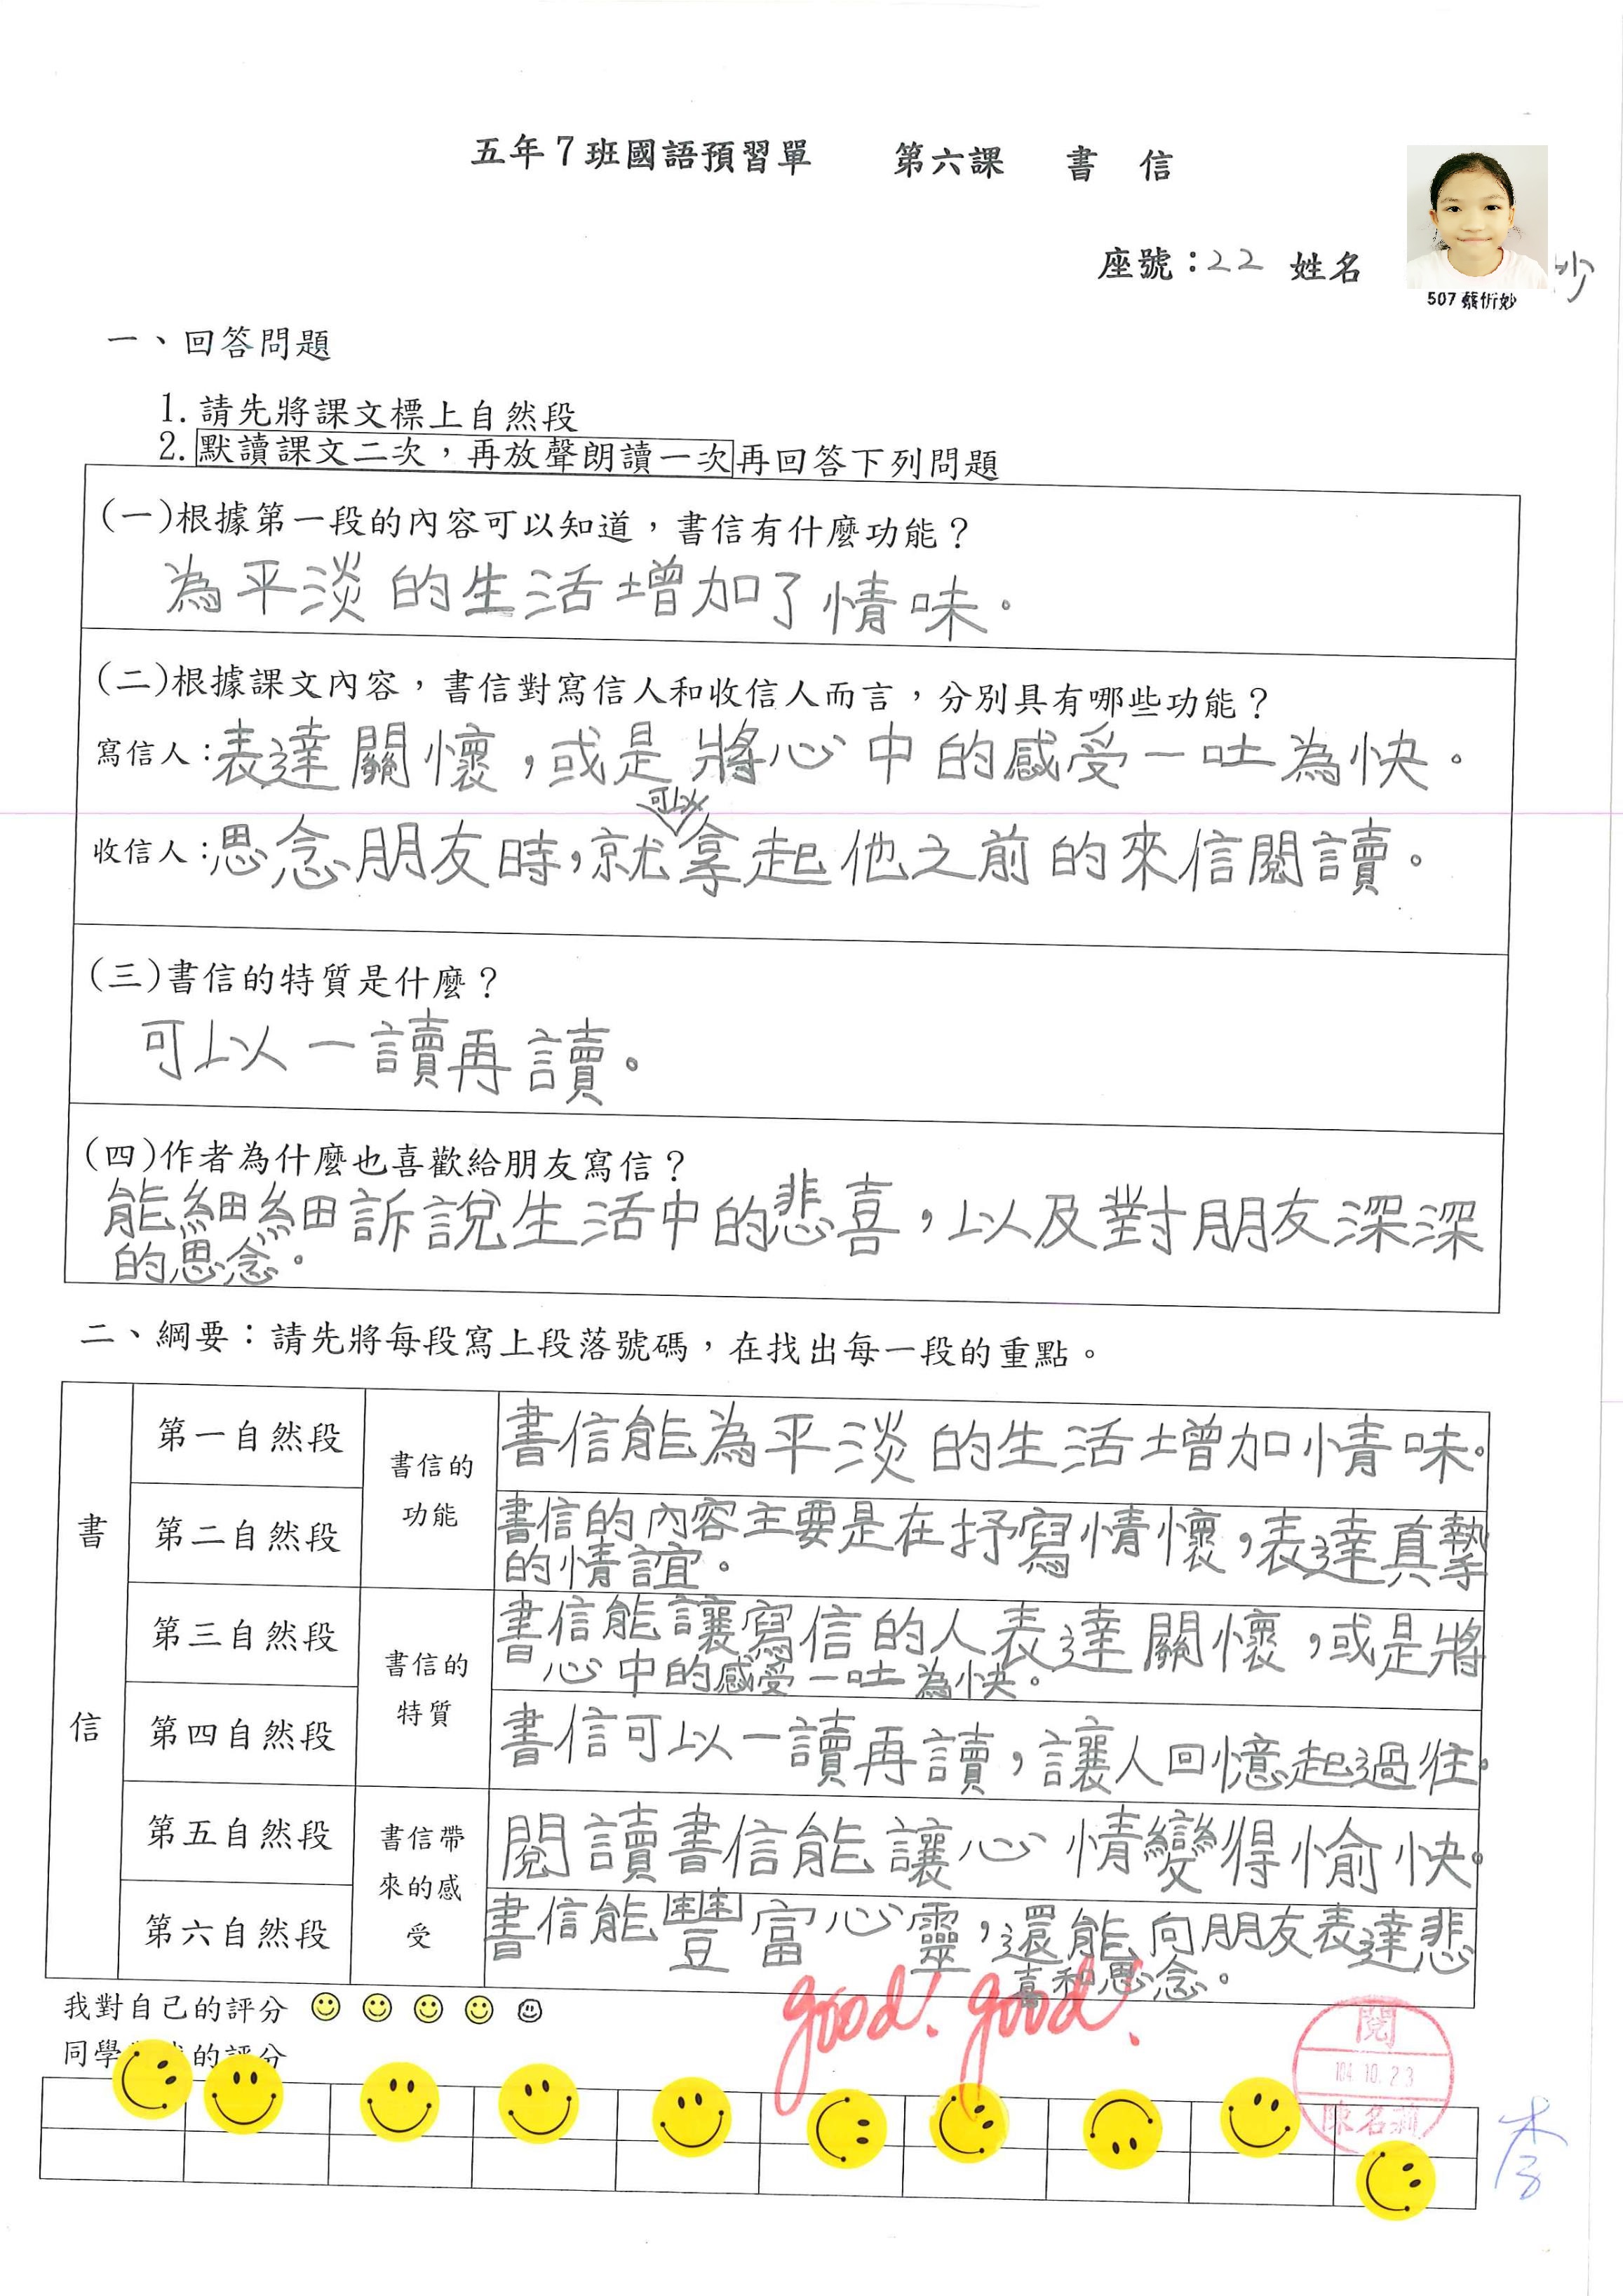 五年7班國語預習單 第六課 書 信
座號：22 姓名
妙
507 蔡忻妙
一、回答問題
1. 請先將課文標上自然段
2. 默讀課文二次，再放聲朗讀一次再回答下列問題
(一)根據第一段的內容可以知道，書信有什麼功能？
為平淡的生活增加了情味。
(二)根據課文內容，書信對寫信人和收信人而言，分別具有哪些功能？
寫信人：表達關懷，或是將心中的感受一吐為快。
可以
收信人：思念朋友時，就拿起他之前的來信閱讀。
(三)書信的特質是什麼？
可以一讀再讀。
(四)作者為什麼也喜歡給朋友寫信？
能細細訴說生活中的悲喜，以及對朋友深深
的思念。
二、綱要：請先將每段寫上段落號碼，在找出每一段的重點。
書信
第一自然段
書信的功能
書信能為平淡的生活增加情味。
第二自然段
書信的內容主要是在抒寫情懷，表達真摯
的情誼。
第三自然段
書信的特質
書信能讓寫信的人表達關懷，或是將
心中的感受一吐為快。
第四自然段
書信可以一讀再讀，讓人回憶起過往。
第五自然段
書信帶來的感受
閱讀書信能讓心情變得愉快。
第六自然段
書信能豐富心靈，還能向朋友表達悲
喜和思念。
我對自己的評分
good! good!
同學 的評分
閱
104.10.23
陳名莉
李